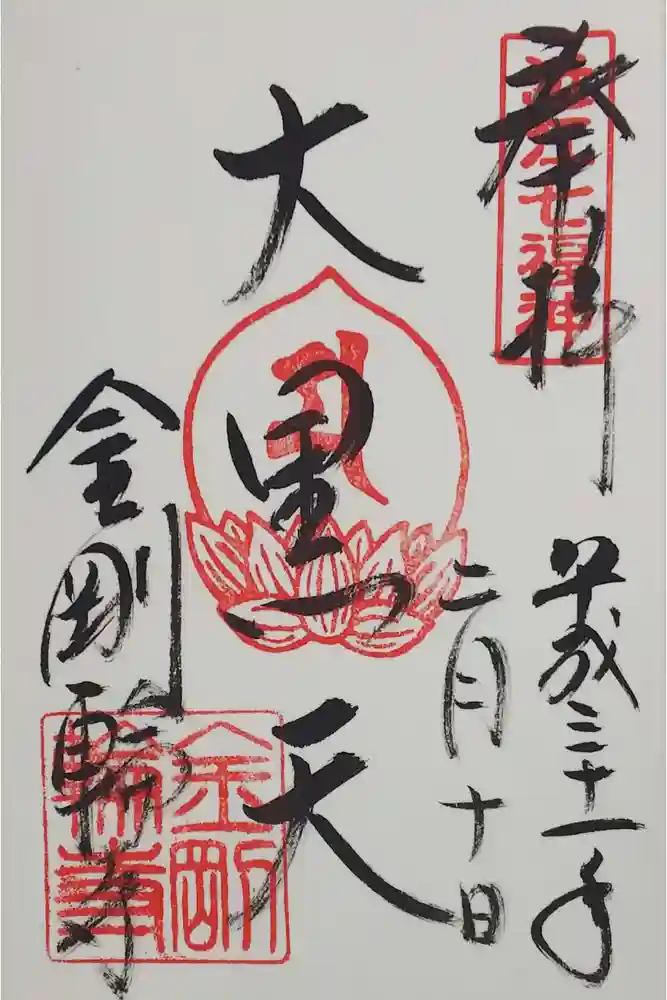 奉拝
近江七福神
平成三十一年
二月十日
大黒天
金剛輪寺
金剛輪寺